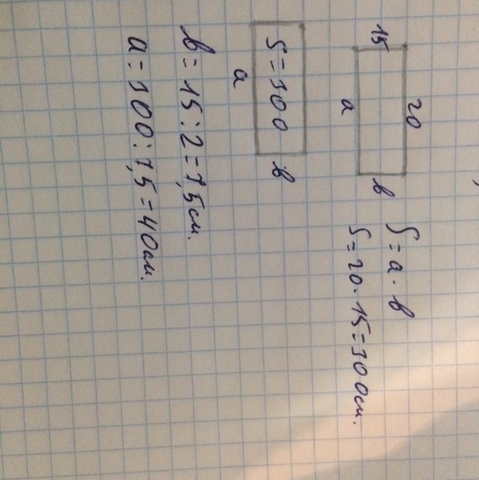 15
20
a
b
S = a · b
S = 20 · 15 = 300 см.
S = 300
a
b
b = 15 : 2 = 7,5 см.
a = 300 : 7,5 = 40 см.